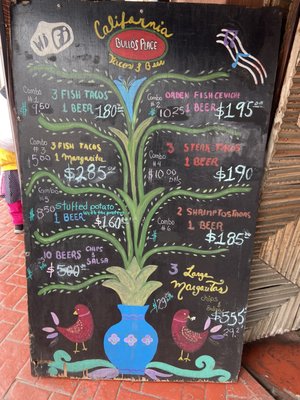 California
Wifi
BULLOS PLACE
Tacos & Bar
3 FISH TACOS
Combo #1
1 BEER $180
9.60
ORDEN FISH CEVICHE
Combo #2
1 BEER $195
10.25
3 FISH TACOS
Combo #3
1 Margarita
$285
3 STEAK TACOS
Combo #4
1 BEER
$10.00
$190
Combo #5
stuffed potato
8.50
1 BEER
$160
2 SHRIMP TOSTADAS
Combo #6
1 BEER
$185
10 BEERS CHIPS & SALSA
$500
3 Large Margaritas
chips &
$555
29.2